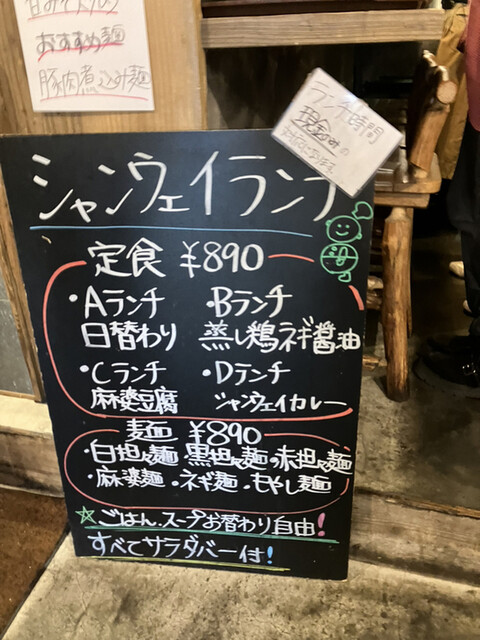 おすすめ麺
豚肉煮込み麺
ランチ時間
現金のみの
シャンウェイランチ
定食 ¥890
・Aランチ ・Bランチ
日替わり 蒸し鶏ネギ醤油
・Cランチ ・Dランチ
麻婆豆腐 シャンウェイカレー
麺 ¥890
・白担々麺・黒担々麺・赤担々麺
・麻婆麺・ネギ麺・もやし麺
☆ごはん.スープお替わり自由!
すべてサラダバー付!